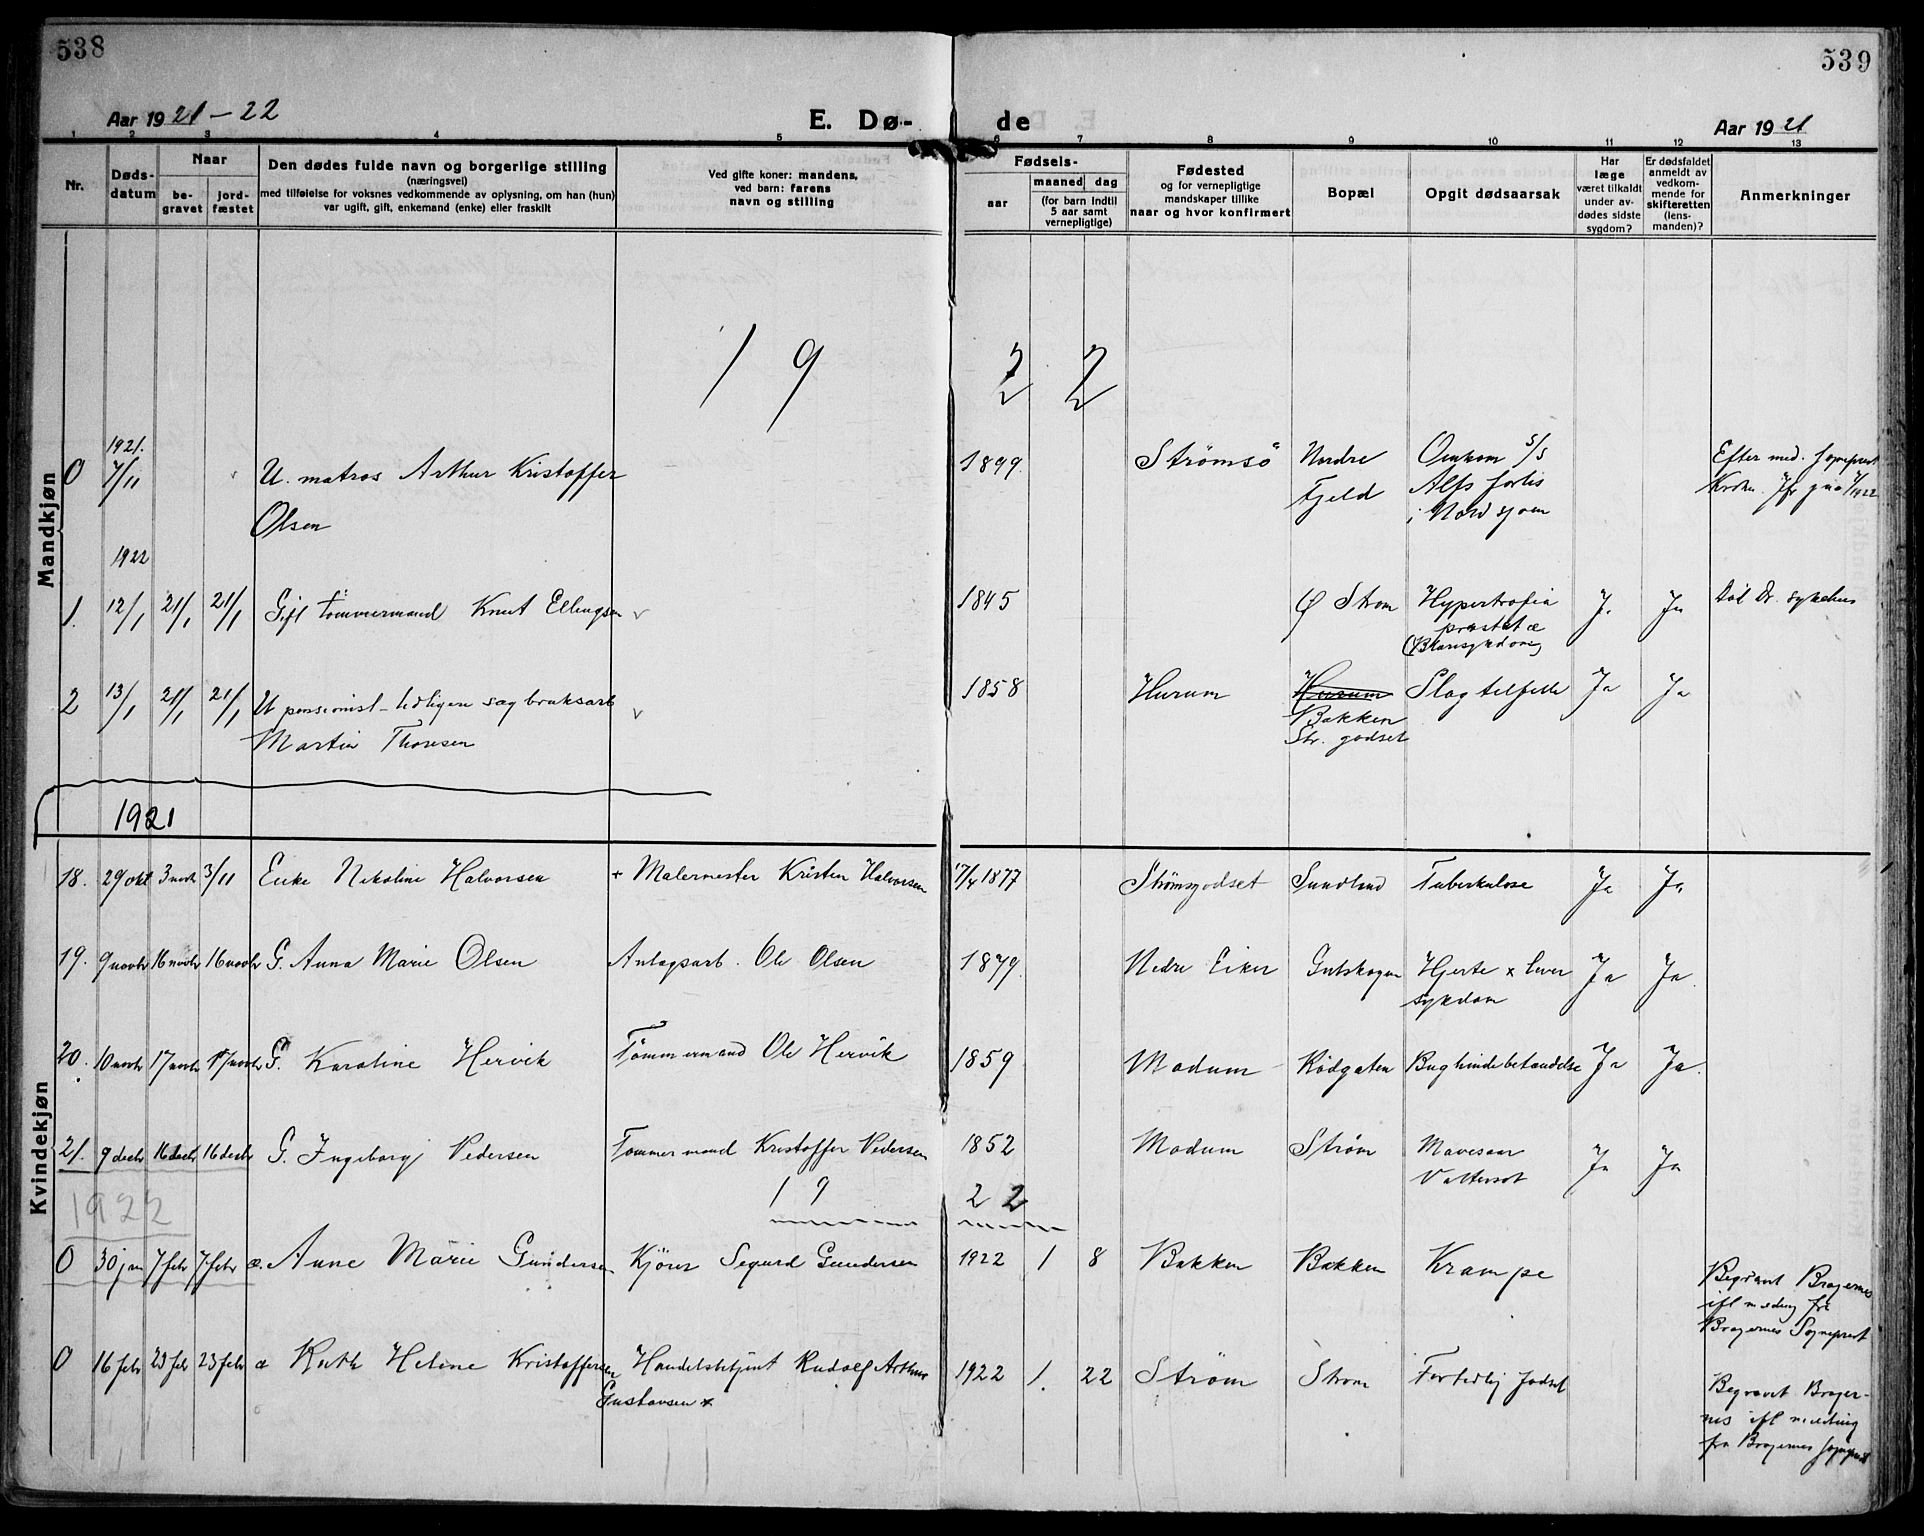 538
539
Aar 1921-22
E. Dø-
de
Aar 1921
1 2 3 4 5 6 7 8 9 10 11 12 13
Nr.
Døds-
datum
Naar
be-
gravet
jord-
fæstet
Den dødes fulde navn og borgerlige stilling
(næringsvei)
med tilføielse for voksnes vedkommende av oplysning, om han (hun)
var ugift, gift, enkemand (enke) eller fraskilt
Ved gifte koner: mandens,
ved barn: farens
navn og stilling
Fødsels-
aar
maaned dag
(for barn indtil
5 aar samt
vernepligtige)
Fødested
og for vernepligtige
mandskaper tillike
naar og hvor konfirmert
Bopæl
Opgit dødsaarsak
Har
læge
været tilkaldt
under av-
dødes sidste
sygdom?
Er dødsfaldet
anmeldt av
vedkom-
mende for
skifteretten
(lens-
manden)?
Anmerkninger
Mandkjøn
19 22
1921.
0 7/11 U. matros Arthur Kristoffer
Olsen
1899. Strömsö Nordre
Fjeld
Omkom S/S
Alfs forlis
i Nordsjøen
Efter med. sogneprest
1922
1. 12/1 21/1 21/1 Gift tömmermand Knut Ellingsen v
1845 Ø Strøm Hypertrofia
prostatæ
J. Ja Død Dr. sykehus
2 13/1 21/1 21/1 U pensionist - tidligere sagbruksarb
Martin Thoresen v
1858 Hurum Hurum
Bakken
Str. godset
Slagtilfelle Ja Ja
1921
Kvindekjøn
18. 29 okt 3 novb 3/11 Enke Nikoline Halvorsen + Malermester Kristen Halvorsen 17/4 1877 Strømsgodset Sundland Tuberkulose Ja Ja
19. 9 novbr 16 novbr 16 novbr G. Anna Marie Olsen Anlægsarb. Ole Olsen 1879. Nedre Eiker Gulskogen Hjerte x lever
sykdom
Ja Ja.
20. 10 novbr 17 novbr 17 novbr G. Karoline Hervik Tömmermand Ole Hervik 1859 Modum Rödgaten Bughindebetændelse Ja Ja.
21. 9 decbr 16 decbr 16 decbr G. Ingeborg Pedersen Tömmermand Kristoffer Pedersen 1852 Modum Strøm Mavesaar
Vattersot
Ja Ja
19 22
1922
0 30 jan 7 febr 7 febr æ. Anne Marie Gundersen Kjörer Segurd Gundersen 1922 1 8 Bakken Bakken Krampe
Begravet Bragernes
ifl melding fra
Bragernes Sogneprest
0 16 febr 23 febr 23 febr æ Ruth Helene Kristoffersen Handelsbetjent Rudolf Arthur
Gustavsen x
1922 1. 22 Ström Strøm For tidlig födsel
Begravet Brager-
nes ifl melding
fra Bragernes sogneprest